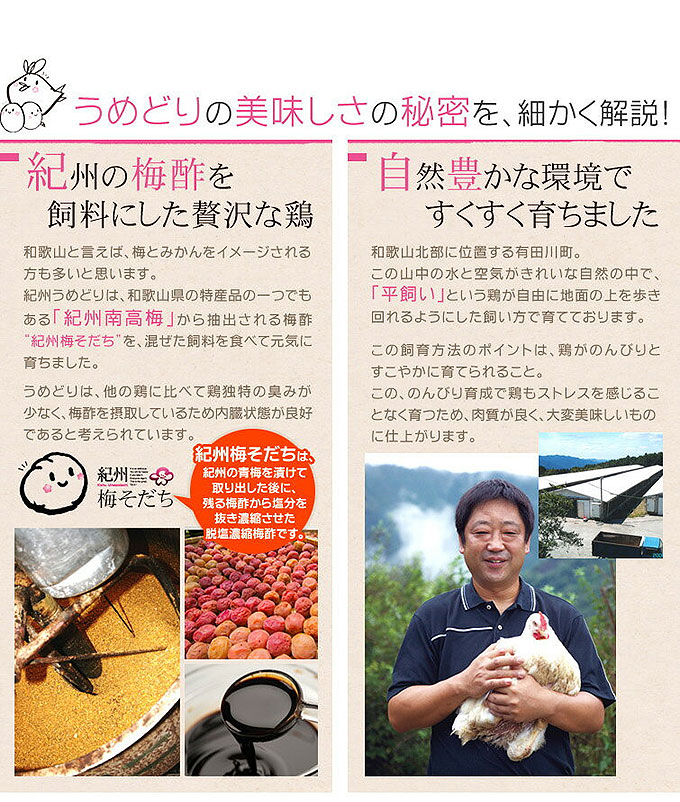 うめどりの美味しさの秘密を、細かく解説！
紀州の梅酢を
飼料にした贅沢な鶏
和歌山と言えば、梅とみかんをイメージされる
方も多いと思います。
紀州うめどりは、和歌山県の特産品の一つでも
ある「紀州南高梅」から抽出される梅酢
“紀州梅そだち”を、混ぜた飼料を食べて元気に
育ちました。
うめどりは、他の鶏に比べて鶏独特の臭みが
少なく、梅酢を摂取しているため内臓状態が良好
であると考えられています。
紀州
梅そだち
紀州梅そだちは、
紀州の青梅を漬けて
取り出した後に、
残る梅酢から塩分を
抜き濃縮させた
脱塩濃縮梅酢です。
自然豊かな環境で
すくすく育ちました
和歌山北部に位置する有田川町。
この山中の水と空気がきれいな自然の中で、
「平飼い」という鶏が自由に地面の上を歩き
回れるようにした飼い方で育てております。
この飼育方法のポイントは、鶏がのんびりと
すこやかに育てられること。
この、のんびり育成で鶏もストレスを感じるこ
となく育つため、肉質が良く、大変美味しいもの
に仕上がります。